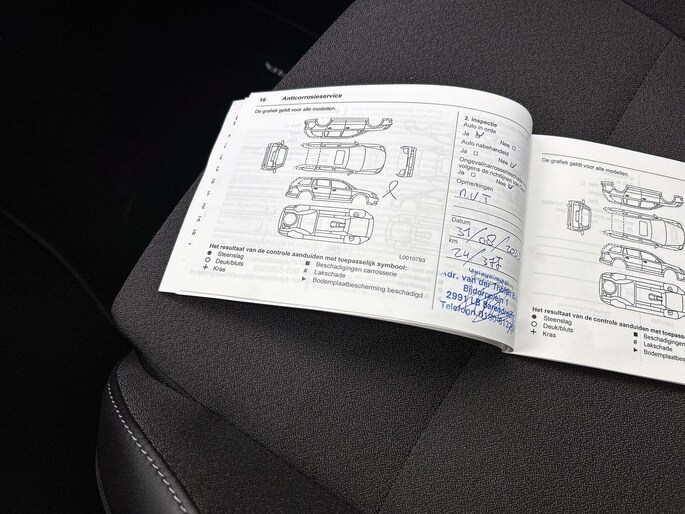 16 Anticorrosieservice
De grafiek geldt voor alle modellen.
L0010783
Het resultaat van de controle aanduiden met toepasselijk symbool:
Steenslag
Deuk/bluts
+ Kras
Beschadigingen carrosserie
# Lakschade
Bodemplaatbescherming beschadigd
2. inspectie
Auto in orde
Ja Nee
Auto nabehandeld
Ja Nee
volgens de richtlijnen van
Ja Nee
Opmerkingen
n.v.t
Datum
31/08/
km
24/
Adr. van der
Bijdorpplein 1
2991 LB Barendrecht
Telefoon
De grafiek geldt voor alle modellen
Het resultaat van de controle aanduiden met toepasse
Steenslag
Deuk/bluts
+ Kras
Beschadigingen
# Lakschade
Bodemplaatbes